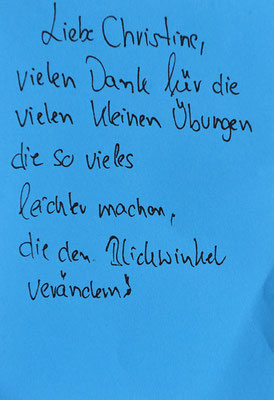 Liebe Christine,
vielen Dank für die
vielen kleinen Übungen
die so vieles
leichter machen,
die den Blickwinkel
verändern!